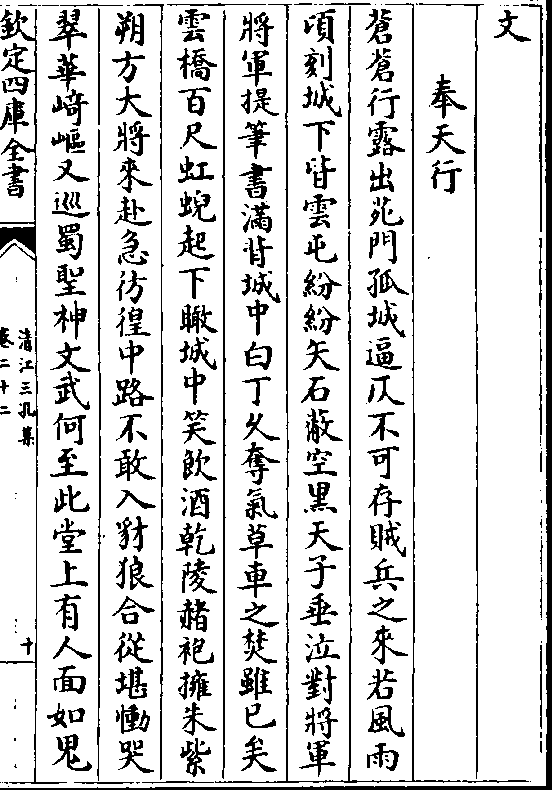 文
奉天行
蒼蒼行露出苑門孤城逼仄不可存賊兵之來若風雨
頃刻城下皆雲屯紛紛矢石蔽空黑天子垂泣對將軍
將軍提筆書滿背城中白丁久奪氣草車之焚雖已矣
雲橋百尺虹蜺起下瞰城中笑飲酒乾陵赭袍擁朱紫
朔方大將來赴急彷徨中路不敢入豺狼合從堪慟哭
翠華崎嶇又巡蜀聖神文武何至此堂上有人面如鬼
欽定四庫全書
清江三孔集
卷二十二
十